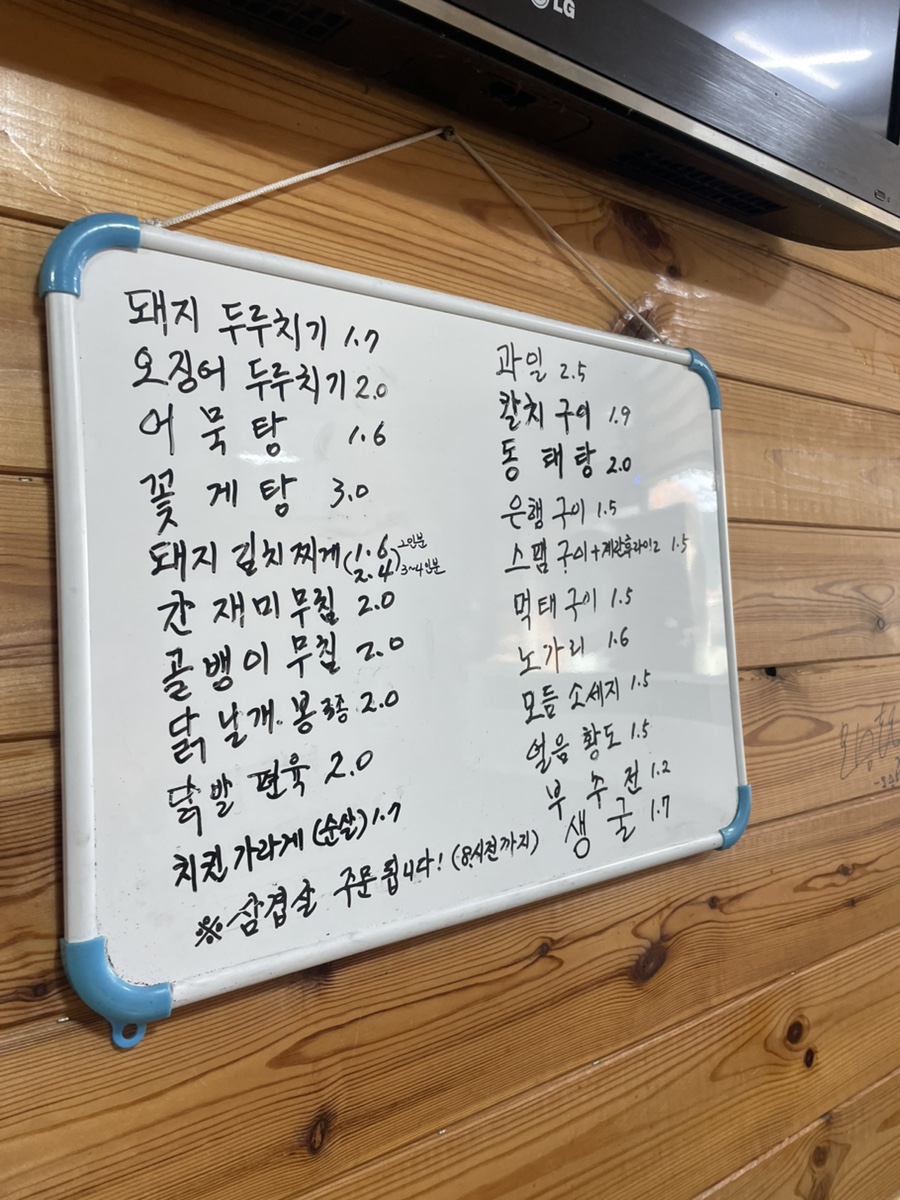 LG
돼지 두루치기 1.7
오징어 두루치기 2.0
어묵탕 1.6
꽃게탕 3.0
돼지 김치찌게 (1.6 2인분
2.4) 3~4인분
간재미 무침 2.0
골뱅이 무침 2.0
닭날개.봉 3종 2.0
닭발 편육 2.0
치킨 가라게 (순살) 1.7
※ 삼겹살 주문 됩니다! (8시전까지)
과일 2.5
칼치 구이 1.9
동태탕 2.0
은행 구이 1.5
스팸 구이+계란후라이2 1.5
먹태구이 1.5
노가리 1.6
모듬 소세지 1.5
얼음 황도 1.5
부추전 1.2
생굴 1.7